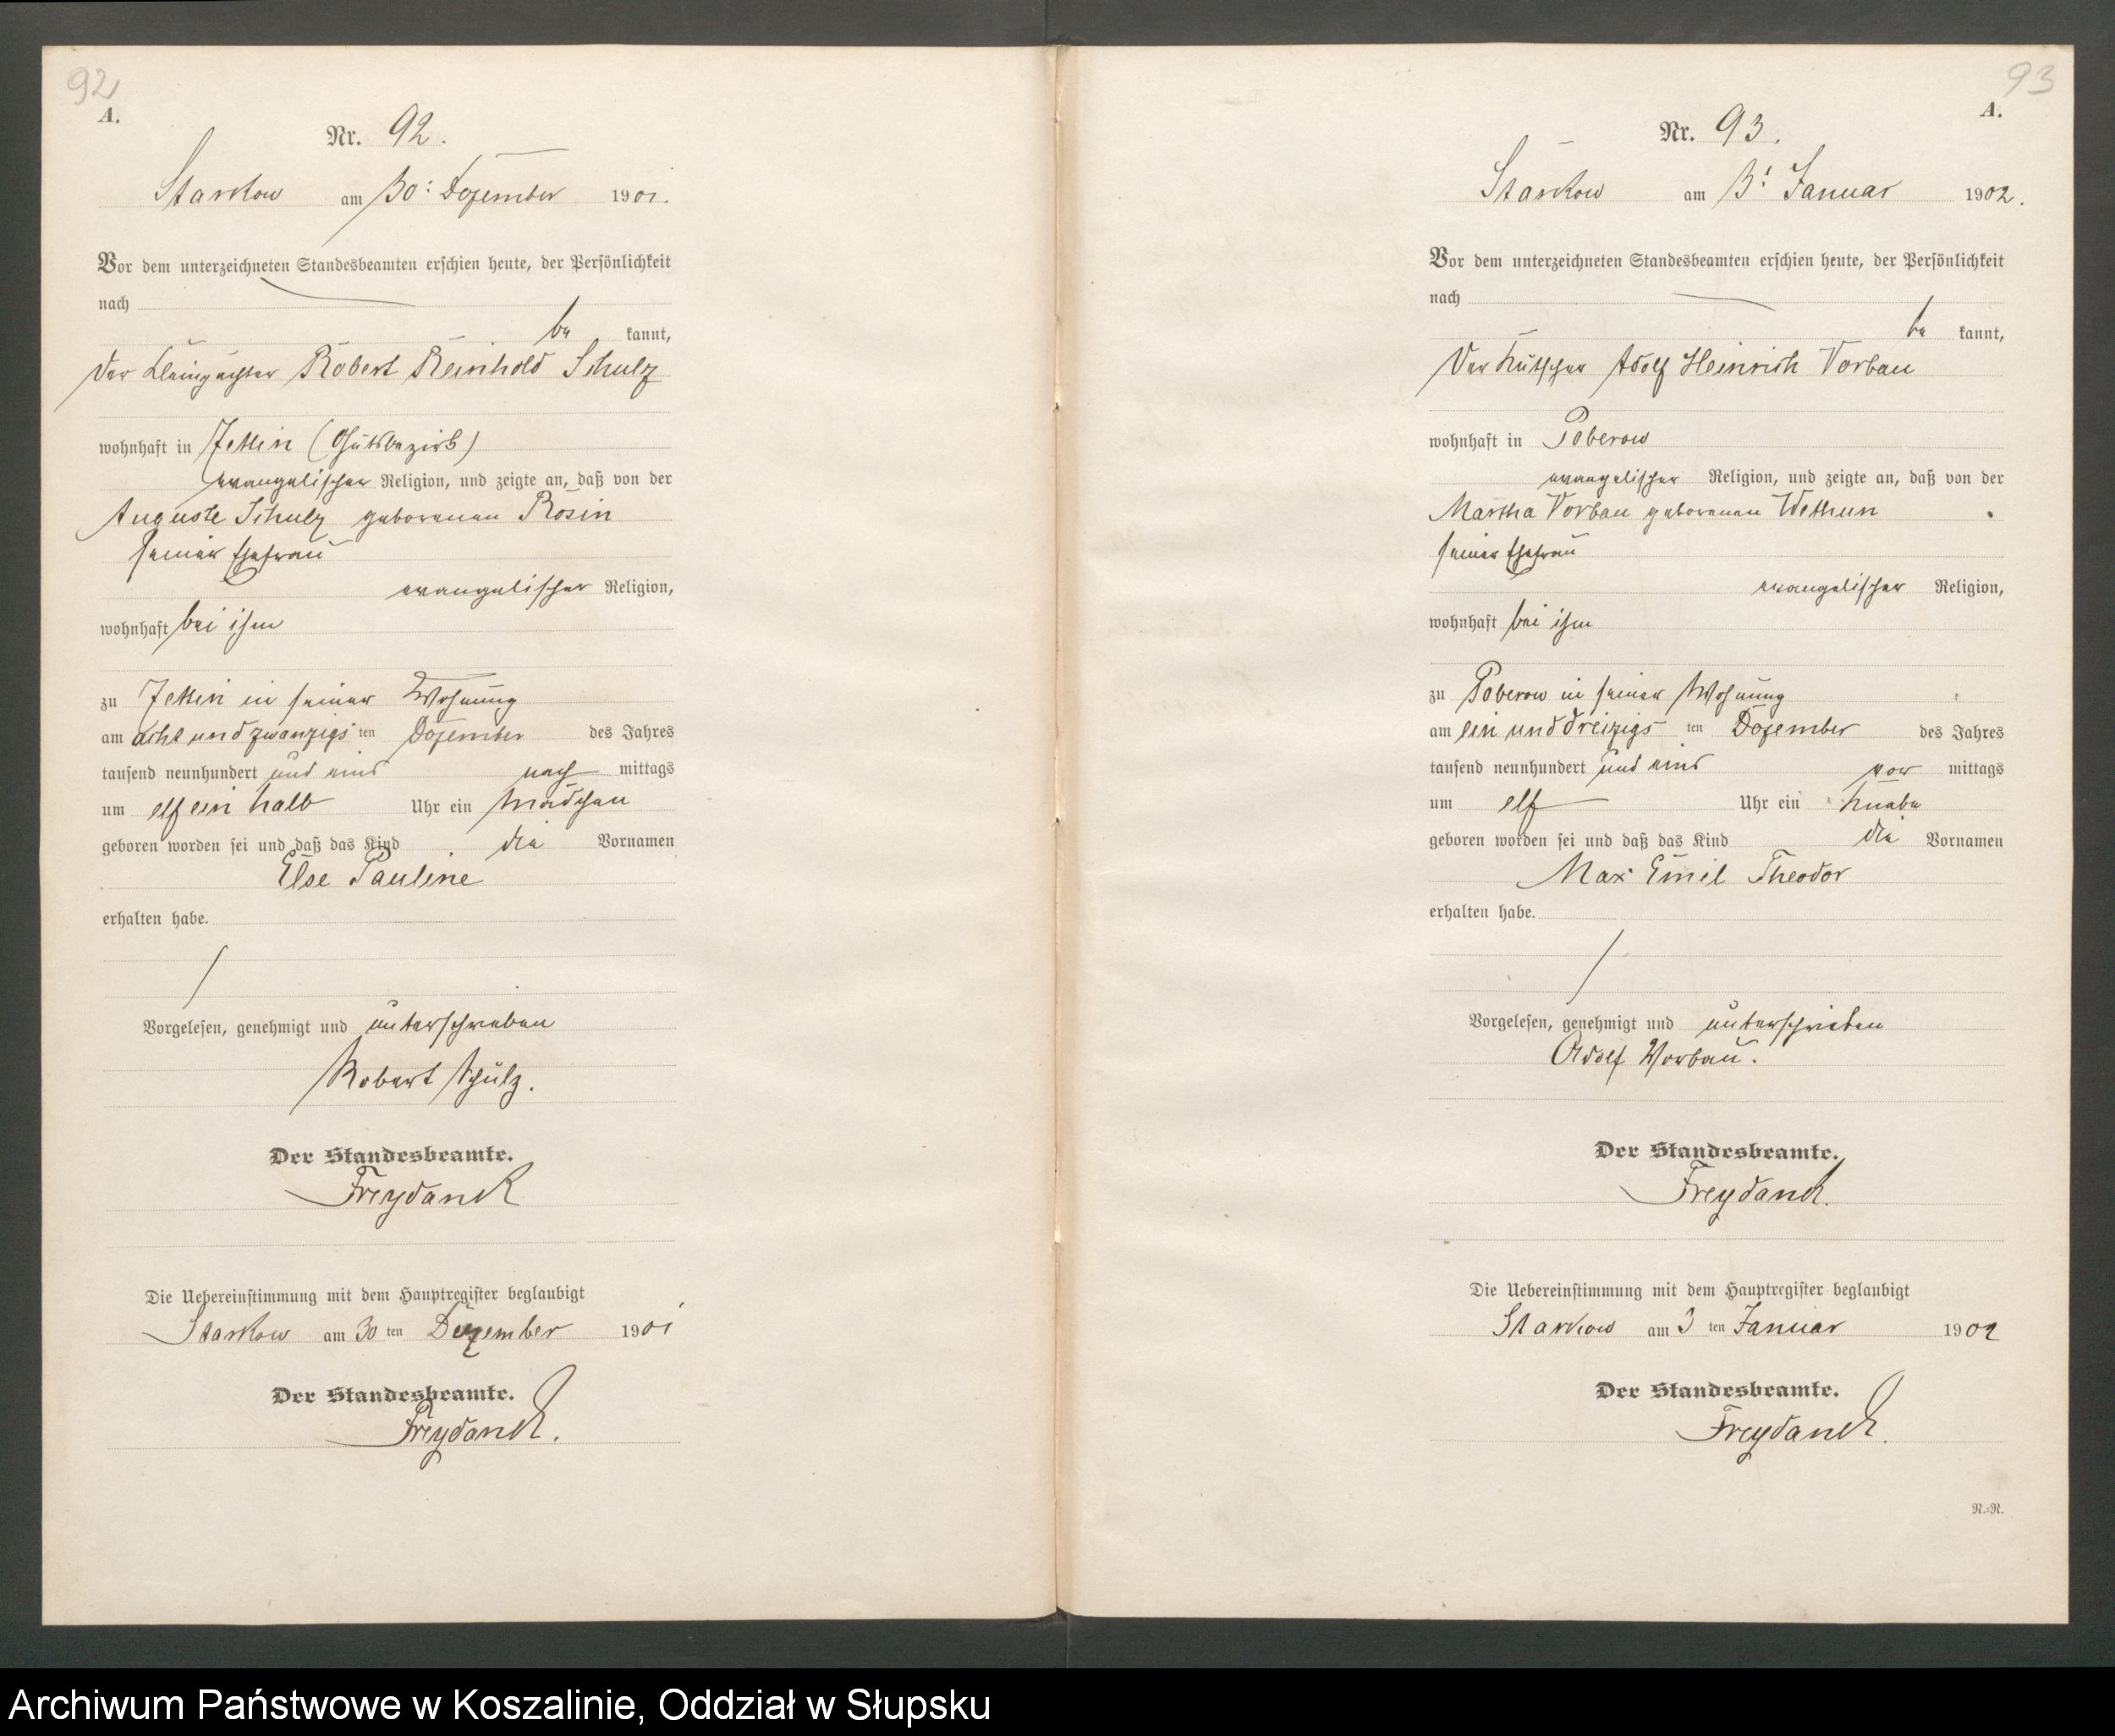 92
A.
Nr. 92.
Starkow am 30: Dezember 1901.
Vor dem unterzeichneten Standesbeamten erschien heute, der Persönlichkeit
nach
be kannt,
der Kleinpächter Robert Reinhold Schulz
wohnhaft in (Gutsbezirk)
evangelischer Religion, und zeigte an, daß von der
Auguste Schulz geborenen Rosin
seiner Ehefrau
evangelischer Religion,
wohnhaft bei ihm
zu in seiner Wohnung
am acht und zwanzigsten Dezember des Jahres
tausend neunhundert und eins nach mittags
um elf ein halb Uhr ein Mädchen
geboren worden sei und daß das Kind die Vornamen
Else Pauline
erhalten habe.
Vorgelesen, genehmigt und unterschrieben
Robert Schulz.
Der Standesbeamte.
Freydanck
Die Uebereinstimmung mit dem Hauptregister beglaubigt
Starkow am 30 ten Dezember 1901
Der Standesbeamte.
Freydanck.
93
A.
Nr. 93.
Starkow am 3: Januar 1902.
Vor dem unterzeichneten Standesbeamten erschien heute, der Persönlichkeit
nach
be kannt,
Der Kutscher Adolf Heinrich Vorbau
wohnhaft in Poberow
evangelischer Religion, und zeigte an, daß von der
Martha Vorbau geborenen
seiner Ehefrau
evangelischer Religion,
wohnhaft bei ihm
zu Poberow in seiner Wohnung
am ein und dreizigs ten Dezember des Jahres
tausend neunhundert und eins vor mittags
um elf Uhr ein Knabe
geboren worden sei und daß das Kind die Vornamen
Max Emil Theodor
erhalten habe.
Vorgelesen, genehmigt und unterschrieben
Adolf Vorbau.
Der Standesbeamte.
Freydanck.
Die Uebereinstimmung mit dem Hauptregister beglaubigt
Starkow am 3 ten Januar 1902
Der Standesbeamte.
Freydanck.
R.=R.
Archiwum Państwowe w Koszalinie, Oddział w Słupsku